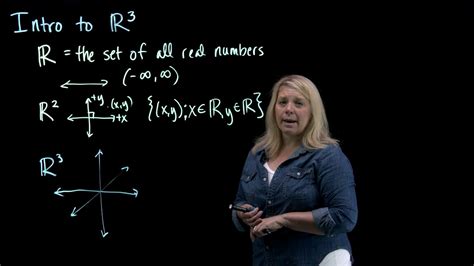 Intro to ℝ³
ℝ = the set of all real numbers
(-∞,∞)
ℝ² +y (x,y) +x {(x,y); x∈ℝ, y∈ℝ}
ℝ³